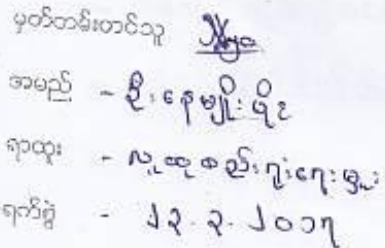 မှတ်တမ်းတင်သူ
အမည် - ဦးနေမျိုးဖိုး
ရာထူး - လူထုစည်းရုံးရေးမှူး
ရက်စွဲ - ၂၃.၃.၂၀၁၇